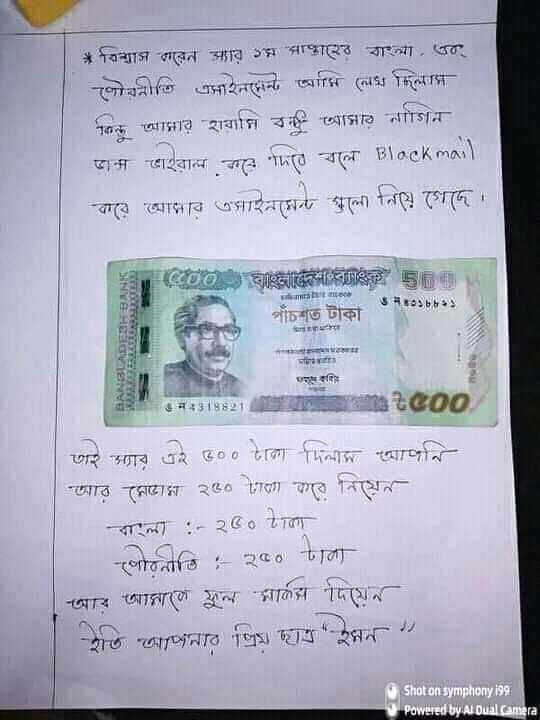 * বিশ্বাস করেন স্যার ১ম সাপ্তাহের বাংলা, এবং
পৌরনীতি এসাইনমেন্ট আমি লেখ ছিলাম
কিন্তু আমার হারামি বন্ধু আমার নাগিন
ডান্স ভাইরাল করে দিবে বলে Blackmail
করে আমার এসাইনমেন্ট গুলো নিয়ে গেছে।
৫০০ বাংলাদেশ ব্যাংক 500
BANGLADESH BANK
পাঁচশত টাকা
ফজলে কবির
4318821
৳500
তাই স্যার এই ৫০০ টাকা দিলাম আপনি
আর মেডাম ২৫০ টাকা করে নিয়েন
বাংলা :- ২৫০ টাকা
পৌরনীতি :- ২৫০ টাকা
আর আমাকে ফুল মার্কস দিয়েন
ইতি আপনার প্রিয় ছাত্র "ইমন"
Shot on symphony i99
Powered by AI Dual Camera